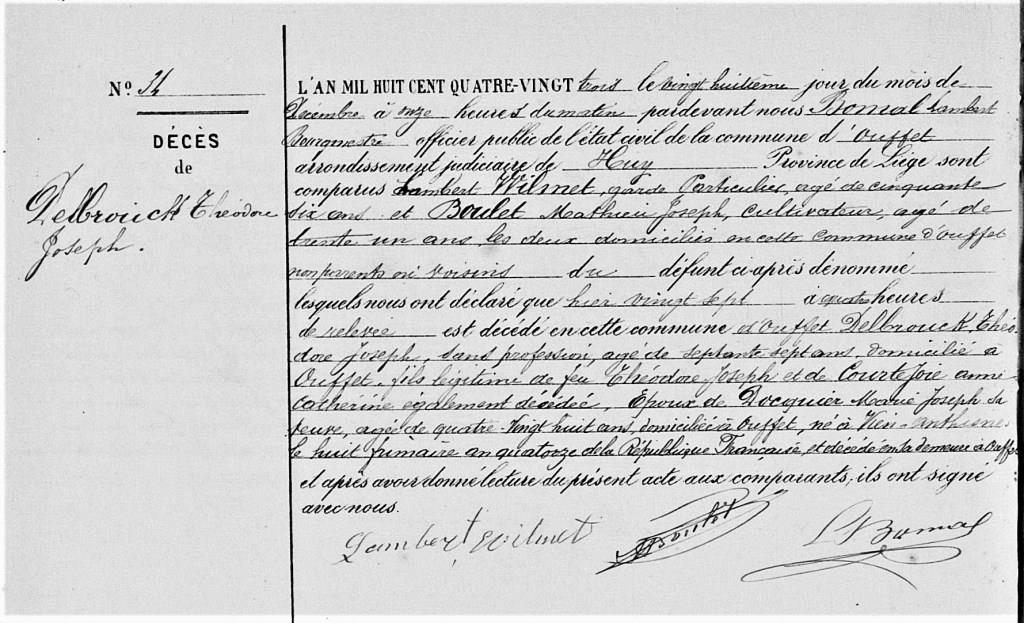 N° 34
DÉCÈS
de
Delbrouck Théodore
Joseph.
L'AN MIL HUIT CENT QUATRE-VINGT trois le vingt huitième jour du mois de
Décembre à onze heures du matin pardevant nous Bomal Lambert
Bourgmestre officier public de l'état civil de la commune d'Ouffet
arrondissement judiciaire de Huy Province de Liège sont
comparus Lambert Wilmet, garde Particulier, agé de cinquante
six ans et Boulet Mathieu Joseph, cultivateur, agé de
trente un ans, les deux domiciliés en cette commune d'Ouffet
non parents ni voisins du défunt ci-après dénommé
lesquels nous ont déclaré que hier vingt sept à quatre heures
de relevée est décédé en cette commune d'Ouffet Delbrouck, Théo
dore Joseph, sans profession, agé de septante sept ans, domicilié à
Ouffet, fils légitime de feu Théodore Joseph et de Courtejoie anne
Catherine également décédée, Epoux de Docquier Marie Joseph sa
veuve, agée de quatre-vingt huit ans, domiciliée à Ouffet, né à Vien-Anthisnes
le huit frimaire an quatorze de la République Française, et décédé en sa demeure à Ouffet
et après avoir donné lecture du présent acte aux comparants, ils ont signé
avec nous.
Lambert Wilmet Boulet L Bomal